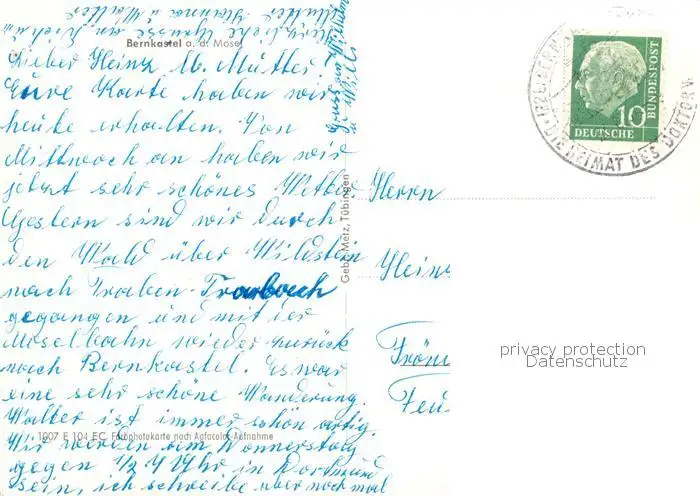 Bernkastel a. d. Mosel
Lieber Heinz u. Mutter
Eure Karte haben wir
heute erhalten. Von
Mittwoch an haben wir
jetzt sehr schönes Wetter.
Gestern sind wir durch
den Wald über Wildstein
nach Traben-Trarbach
gegangen und mit der
Moselbahn wieder zurück
nach Bernkastel. Es war
eine sehr schöne Wanderung.
Walter ist immer schön artig.
Wir werden am Donnerstag
gegen 1/2 4 Uhr in Dortmund
sein, ich schreibe aber noch mal
Herzliche Grüsse an Dich u.
Mutter Hanna u Walter
1007 E 104 EC Farbphotokarte nach Agfacolor-Aufnahme
Gebr. Metz, Tübingen
Herrn
Heinz
DEUTSCHE
BUNDESPOST
10
DIE HEIMAT DES DOKTORW
privacy protection
Datenschutz